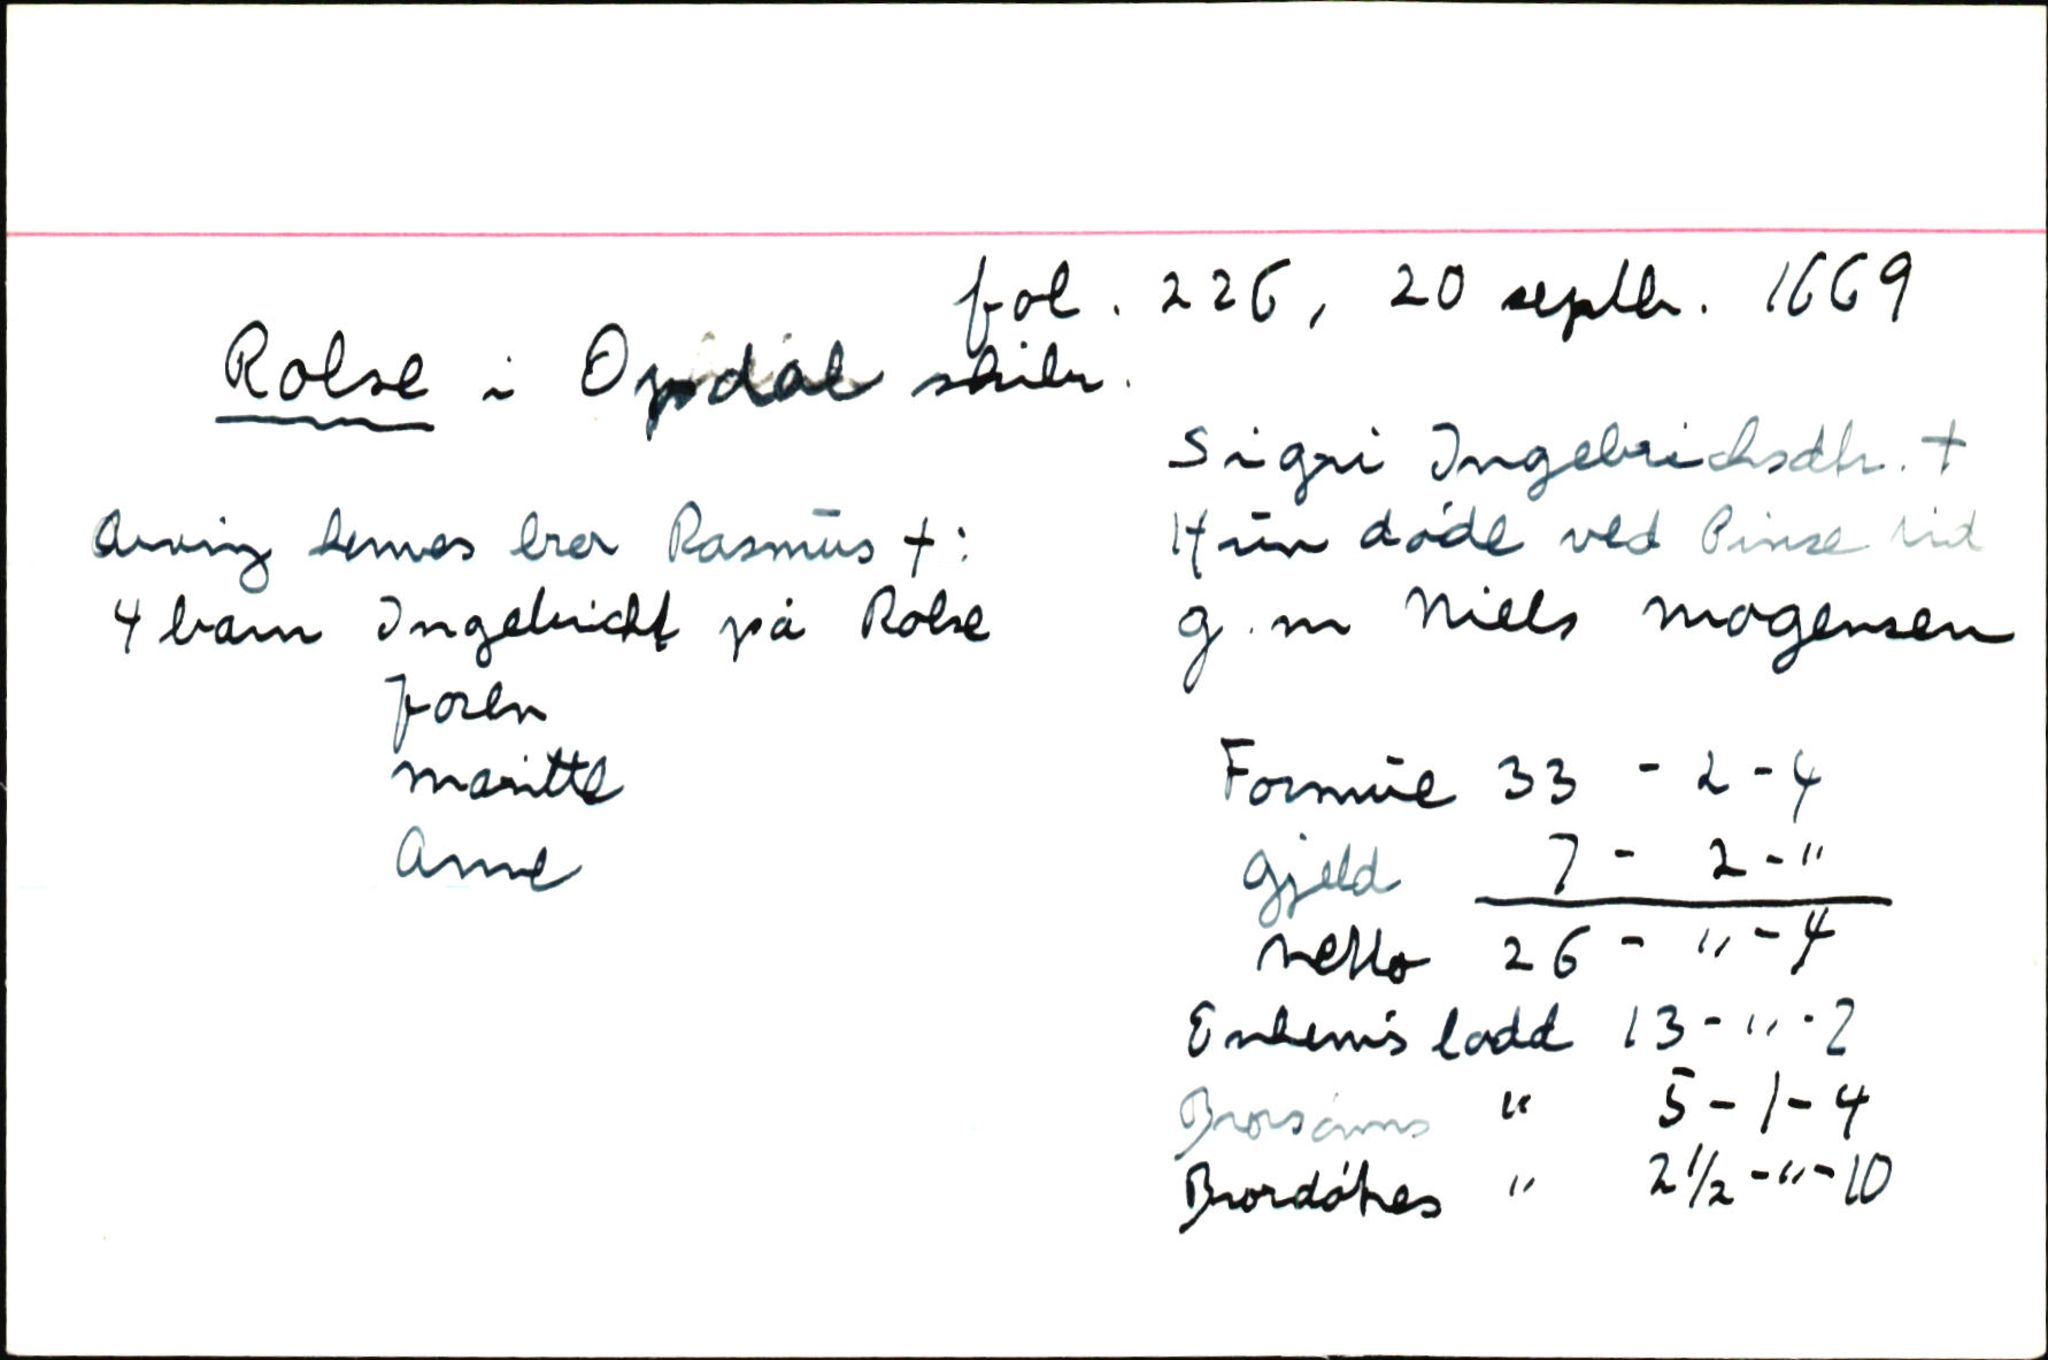 fol. 226, 20 septbr. 1669
Rolse i Opdal skibr.
Sigri Ingebrichsdtr. +
Hun døde ved Pinse tid
g. m Niels Mogensen
Arving hennes bror Rasmus +:
4 barn Ingebricht på Rolse
Joren
Maritte
Anne
Formue 33 - 2 - 4
Gjeld 7 - 2 - "
Netto 26 - " - 4
Enkem's lodd 13 - " - 2
Brorsønns " 5 - 1 - 4
Brordøtres " 2 1/2 - " - 10